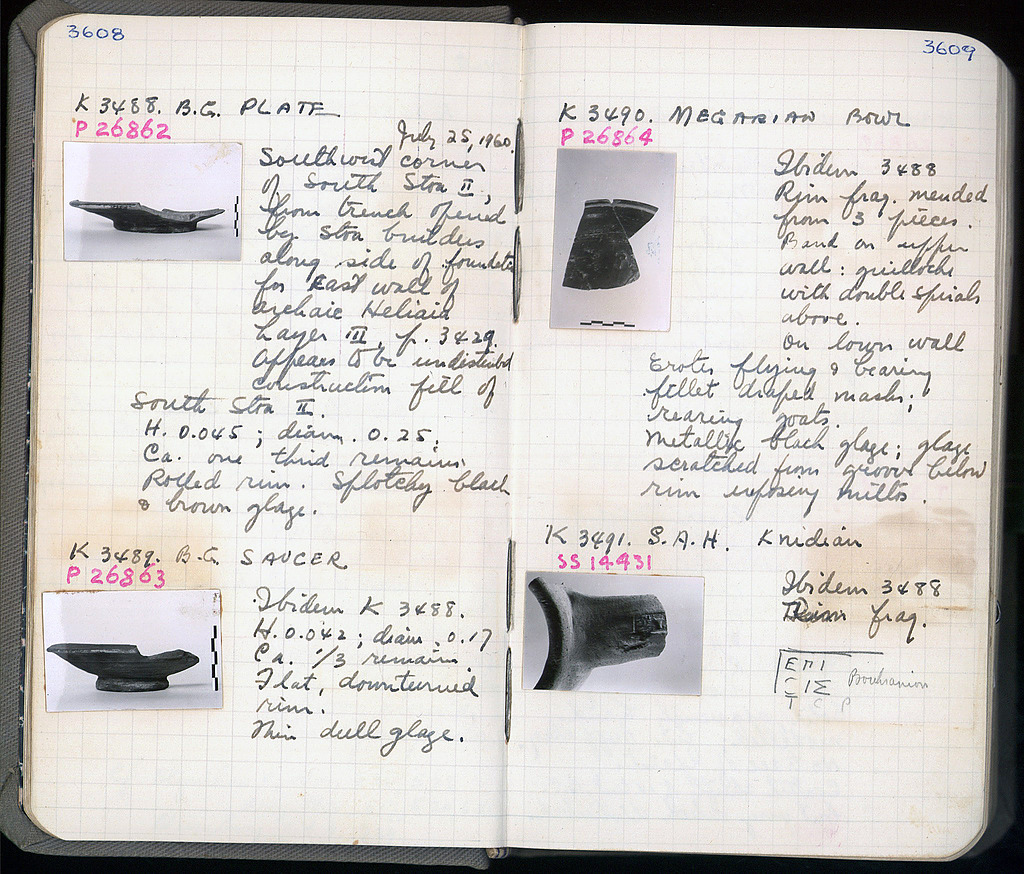 3608
K 3488. B.G. PLATE
P 26862
July 25, 1960.
Southwest corner
of South Stoa II,
from trench opened
by Stoa builders
along side of foundatn
for East wall of
archaic Heliaia
Layer III, p. 3429.
Appears to be undisturbed
construction fill of
South Stoa II.
H. 0.045; diam. 0.25;
Ca. one third remains.
Rolled rim. Splotchy black
& brown glaze.
K 3489. B.G. SAUCER
P 26863
Ibidem K 3488.
H. 0.042; diam. 0.17
Ca. 1/3 remains.
Flat, downturned
rim.
Thin dull glaze.
3609
K 3490. MEGARIAN BOWL
P 26864
Ibidem 3488
Rim frag. mended
from 3 pieces.
Band on upper
wall: guilloche
with double spirals
above.
On lower wall
Erotes flying & bearing
fillet draped masks;
rearing goats.
Metallic black glaze; glaze
scratched from groove below
rim exposing miltos.
K 3491. S.A.H. Knidian
SS 14431
Ibidem 3488
frag.
ΕΠΙ
ΙΣ Boukranion